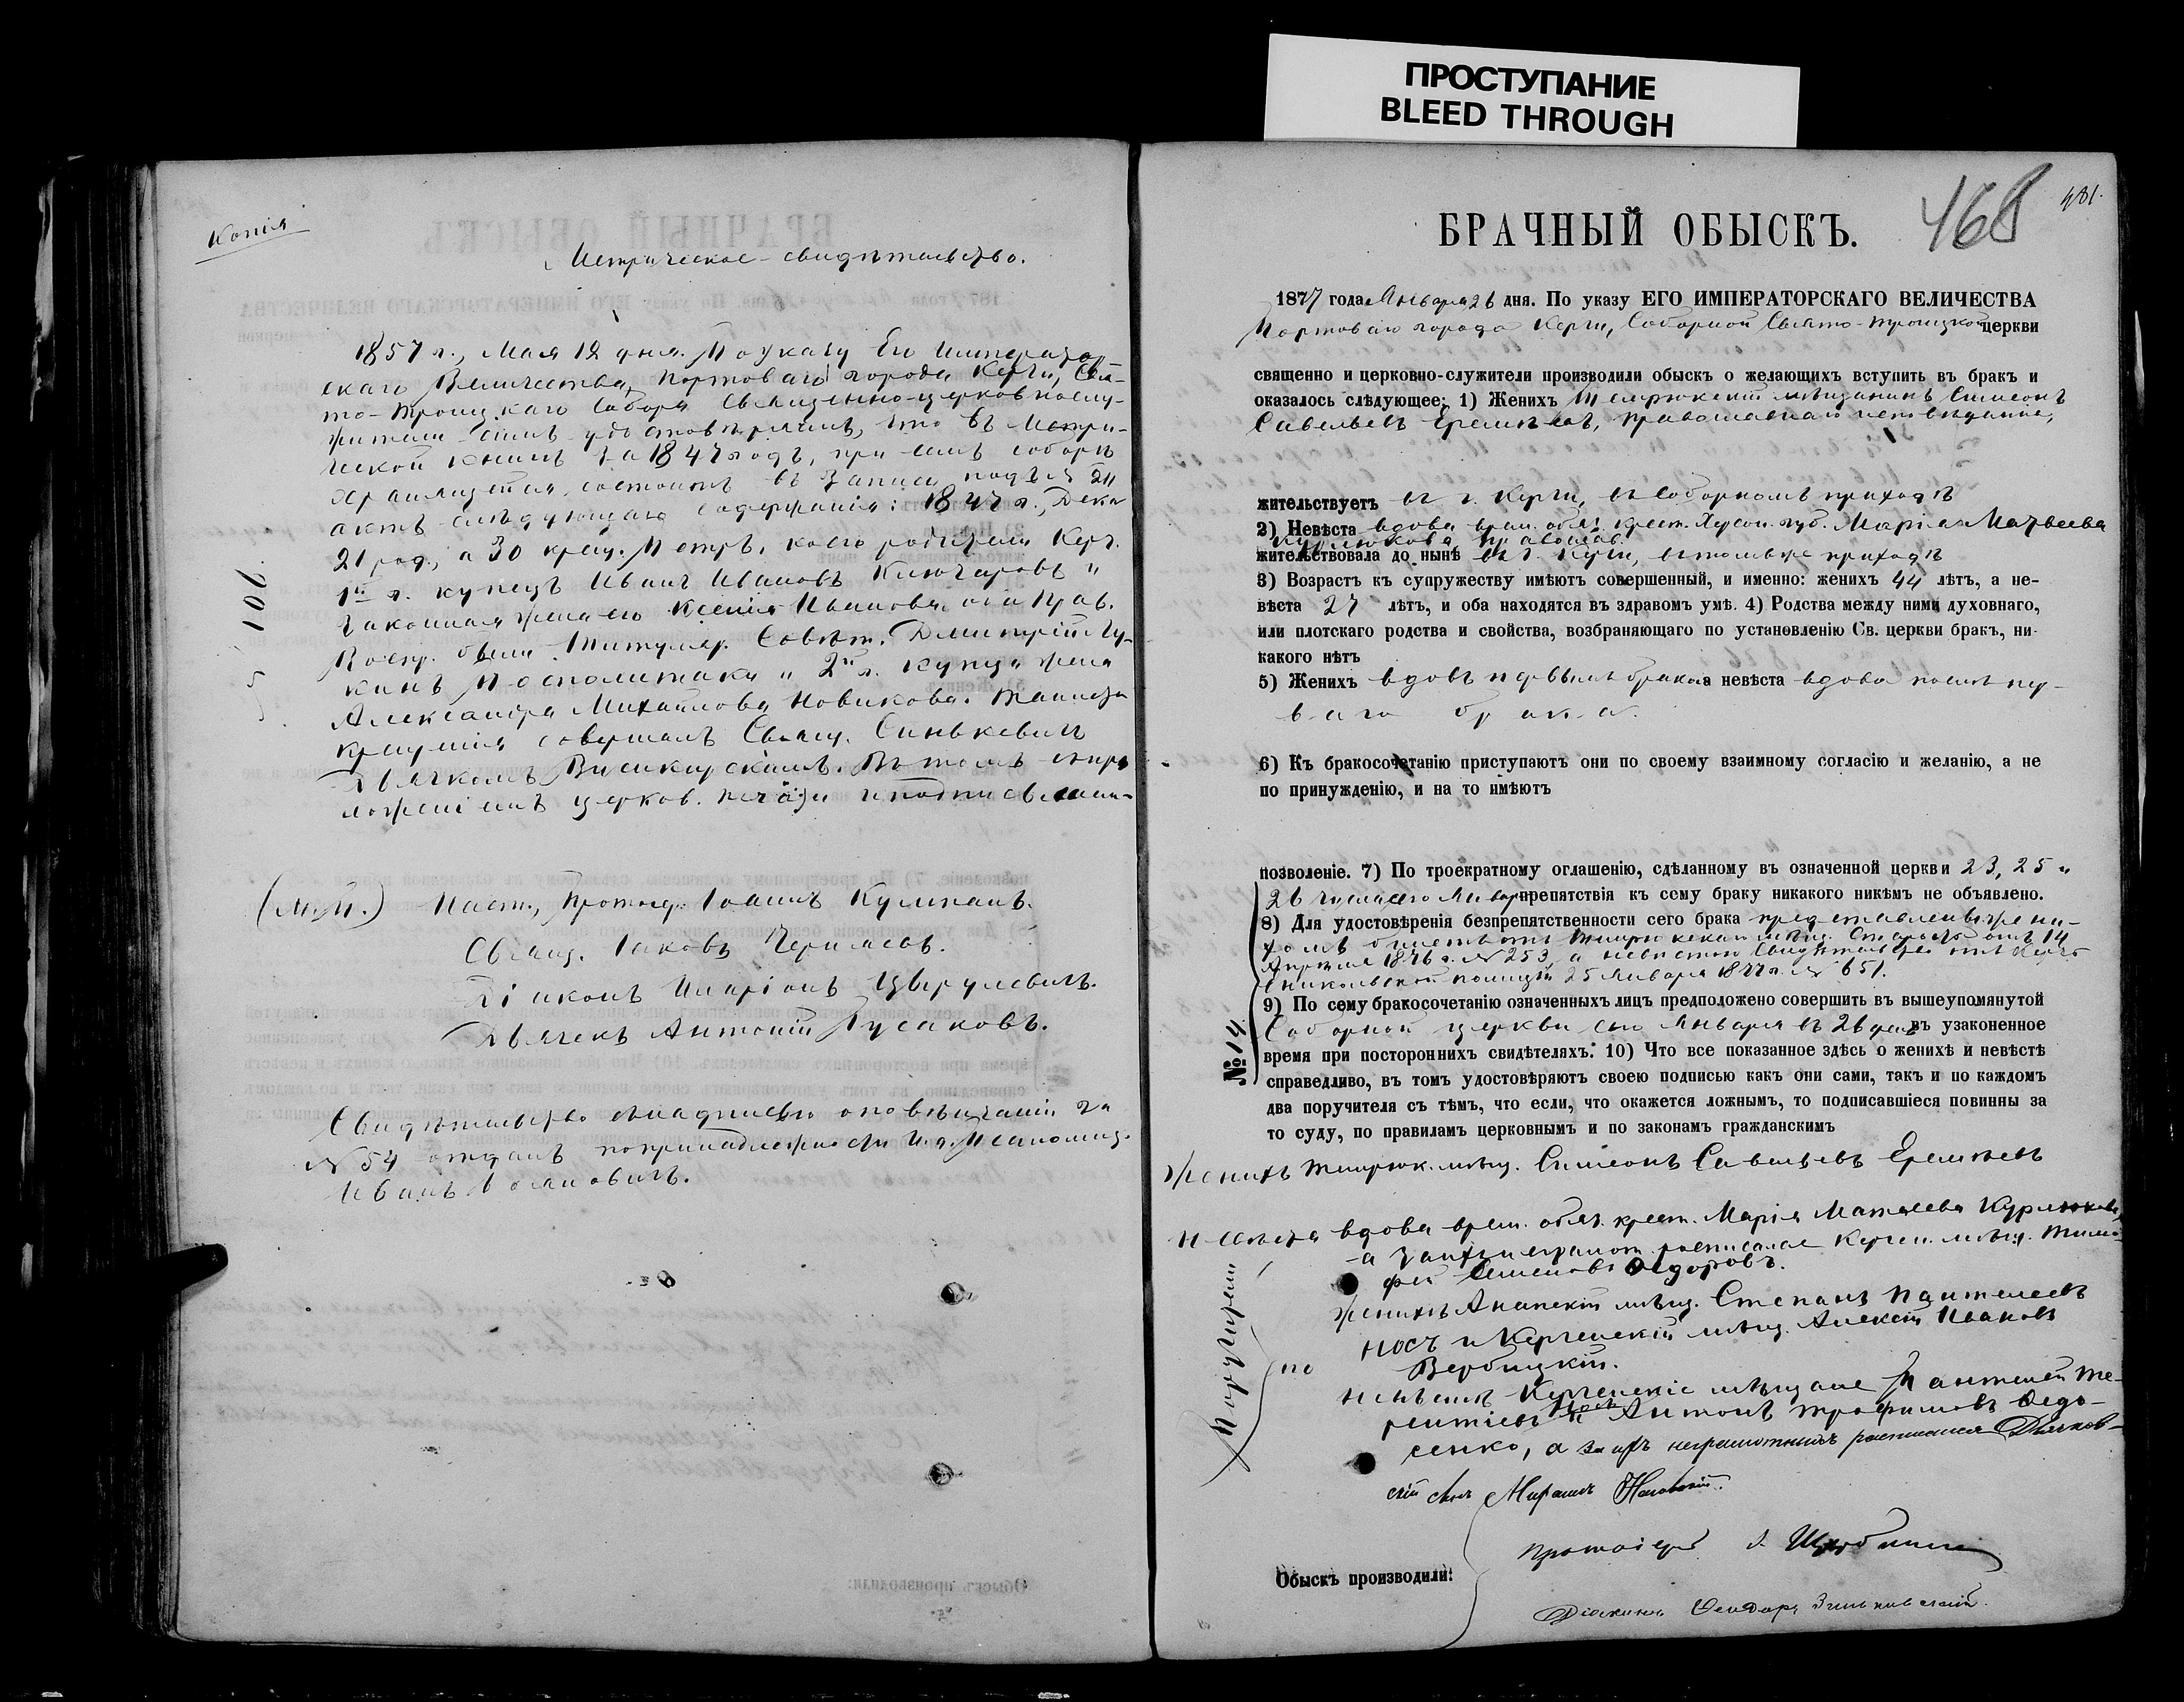 ПРОСТУПАНИЕ
BLEED THROUGH
Копія
Метрическое свидѣтельство.
1857 г., Мая 12 дня. По указу Его Император-
скаго Величества, портоваго города Керчи, Свя-
то-Троицкаго Собора Священно-церковнослу-
жители симъ удостовѣряемъ, что въ Метри-
ческой книгѣ за 1847 годъ, при семъ соборѣ
хранящейся, состоитъ въ записи подъ №
актъ слѣдующаго содержанія: 1847 г., Дека
21 род., а 30 крещ. Петръ, коего родители Керч.
1й г. купецъ Иванъ Ивановъ Ключаровъ и
законная жена его Ксенія Иванова, оба Прав.
Воспр. были Титуляр. Совѣт. Димитрій Лу-
кинъ Посполитаки и 2й г. купца жена
Александра Михайлова Новикова. Таинство
крещенія совершалъ Священ. Синькевичъ
съ Дьячкомъ Въ томъ съ при-
ложеніемъ церков. печати и подписываемъ-
№ 201
(М.П.) Наст., Протоіер. Іоаннъ Кумпанъ.
Свящ. Іаковъ Чернявъ.
Діаконъ Иларіонъ
Дьячекъ Антоній Гусаковъ.
Свидѣтельство съ надписью о повѣнчаніи за
№ 54 отдалъ по принадлежности И. д. Псаломщ.
Иванъ
БРАЧНЫЙ ОБЫСКЪ.
468
481.
1877 года Января 26 дня. По указу ЕГО ИМПЕРАТОРСКАГО ВЕЛИЧЕСТВА
Портоваго города Керчи, Соборной Свято-Троицкой церкви
священно и церковно-служители производили обыскъ о желающихъ вступить въ бракъ и
оказалось слѣдующее: 1) Женихъ Темрюкскій мѣщанинъ Симеонъ
Савельевъ Еремѣевъ, православнаго исповѣданія,
жительствуетъ въ г. Керчи, въ Соборномъ приходѣ
2) Невѣста вдова врем. обяз. крест. Херсон. губ. Марія Матвеева
Курлюкова, православ.
жительствовала до нынѣ въ г. Керчи, въ томъ же приходѣ
3) Возрастъ къ супружеству имѣютъ совершенный, и именно: женихъ 44 лѣтъ, а не-
вѣста 27 лѣтъ, и оба находятся въ здравомъ умѣ. 4) Родства между ними духовнаго,
или плотскаго родства и свойства, возбраняющаго по установленію Св. церкви бракъ, ни-
какого нѣтъ
5) Женихъ вдовъ первымъ бракомъ а невѣста вдова послѣ пер-
ваго брака.
6) Къ бракосочетанію приступаютъ они по своему взаимному согласію и желанію, а не
по принужденію, и на то имѣютъ
позволеніе. 7) По троекратному оглашенію, сдѣланному въ означенной церкви 23, 25 и
26 чиселъ сего Января препятствія къ сему браку никакого никѣмъ не объявлено.
8) Для удостовѣренія безпрепятственности сего брака представлены: жени-
хомъ Темрюкскаго мѣщ. Старосты отъ 14
Апрѣля 1876 г. № 253, а невѣстою Свидѣтельство отъ Керчь-
Еникольской полиціи 25 Января 1877 г. № 651.
9) По сему бракосочетанію означенныхъ лицъ предположено совершить въ вышеупомянутой
Соборной церкви сего Января въ 26 день въ узаконенное
время при постороннихъ свидѣтеляхъ. 10) Что все показанное здѣсь о женихѣ и невѣстѣ
справедливо, въ томъ удостовѣряютъ своею подписью какъ они сами, такъ и по каждомъ
два поручителя съ тѣмъ, что если, что окажется ложнымъ, то подписавшіеся повинны за
то суду, по правиламъ церковнымъ и по законамъ гражданскимъ
№ 14
Женихъ Темрюк. мѣщ. Симеонъ Савельевъ Еремѣевъ
Невѣста вдова врем. обяз. крест. Марія Матвеева Курлюкова,
а за нея неграмот. росписался Керчен. мѣщ. Тимо-
фей Семеновъ Ѳедоровъ.
Поручители
по
женихѣ Анапскій мѣщ. Степанъ Пантелеевъ
Носъ и Керченскій мѣщ. Алексѣй Ивановъ
Вербицкій.
невѣстѣ Керченскіе мѣщане Пантелей Те-
рентіевъ Носъ и Антонъ Трофимовъ Ѳедо-
сенко, а за ихъ неграмотныхъ росписался Дьячков-
скій сынъ
Обыскъ производили:
Протоіерей І.
Діаконъ Ѳеодоръ Зиньковскій.